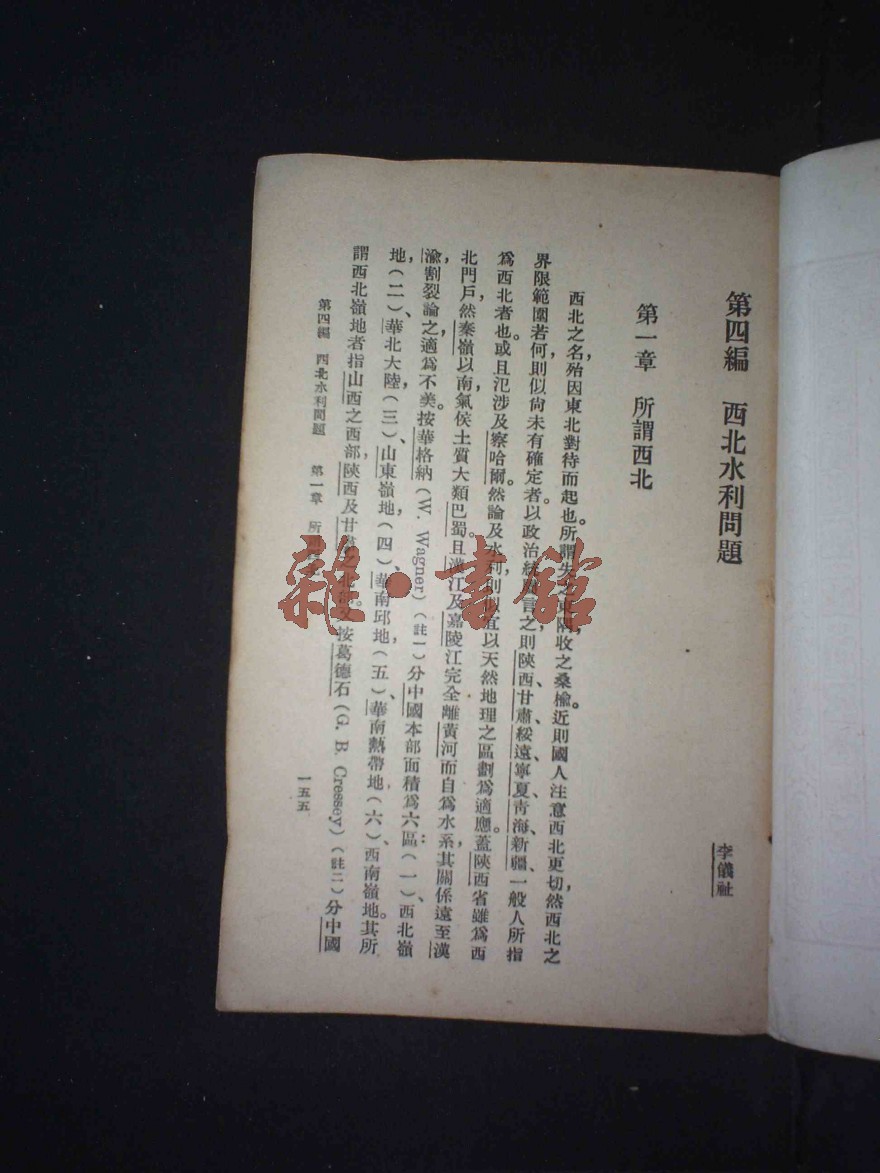 第四編　西北水利問題
李儀祉
第一章　所謂西北
西北之名，殆因東北對待而起也。所謂失之東隅，收之桑榆。近則國人注意西北更切，然西北之
界限範圍若何，則似尙未有確定者。以政治統屬言之，則陝西、甘肅、綏遠、寧夏、靑海、新疆，一般人所指
爲西北者也。或且氾涉及察哈爾。然論及水利，則似宜以天然地理之區劃爲適應。蓋陝西省雖爲西
北門戶，然秦嶺以南，氣侯土質，大類巴蜀。且漢江及嘉陵江完全離黃河而自爲水系，其關係遠至漢
渝，割裂論之，適爲不美。按華格納（W. Wagner）（註一）分中國本部面積爲六區：（一）西北嶺
地，（二）華北大陸，（三）山東嶺地，（四）華南邱地，（五）華南熱帶地，（六）西南嶺地。其所
謂西北嶺地者，指山西之西部，陝西及甘肅之北部。又按葛德石（G. B. Cressey）（註二）分中國
第四編　西北水利問題　第一章　所謂西北
一五五
雜·書館